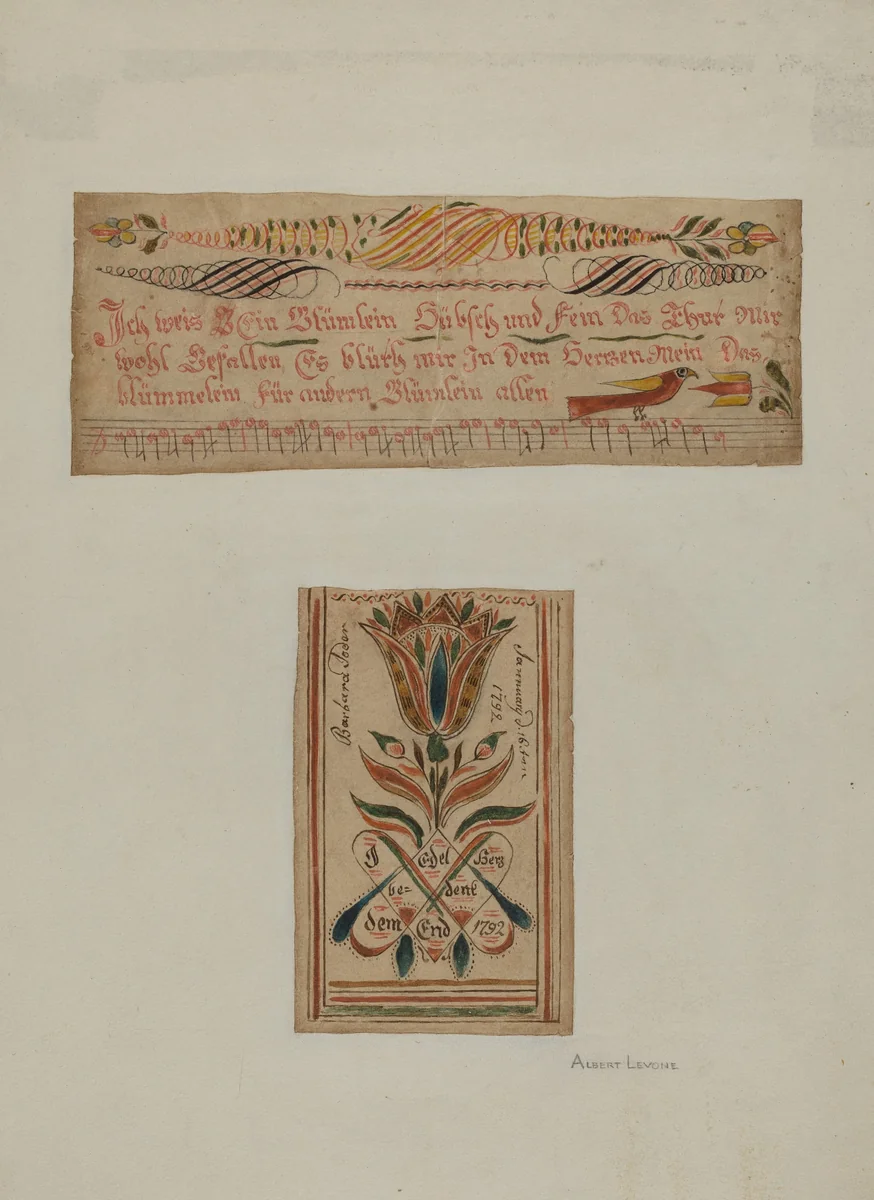 Ich weis Ein Blümlein Hübsch und Fein Das Thut Mir
wohl Gefallen, Es blüth mir In Dem Hertzen Mein Das
blümmelein Für andern Blümlein allen
Barbara
1792
I Edel Herz
be= denk
dem End 1792
ALBERT LEVONE